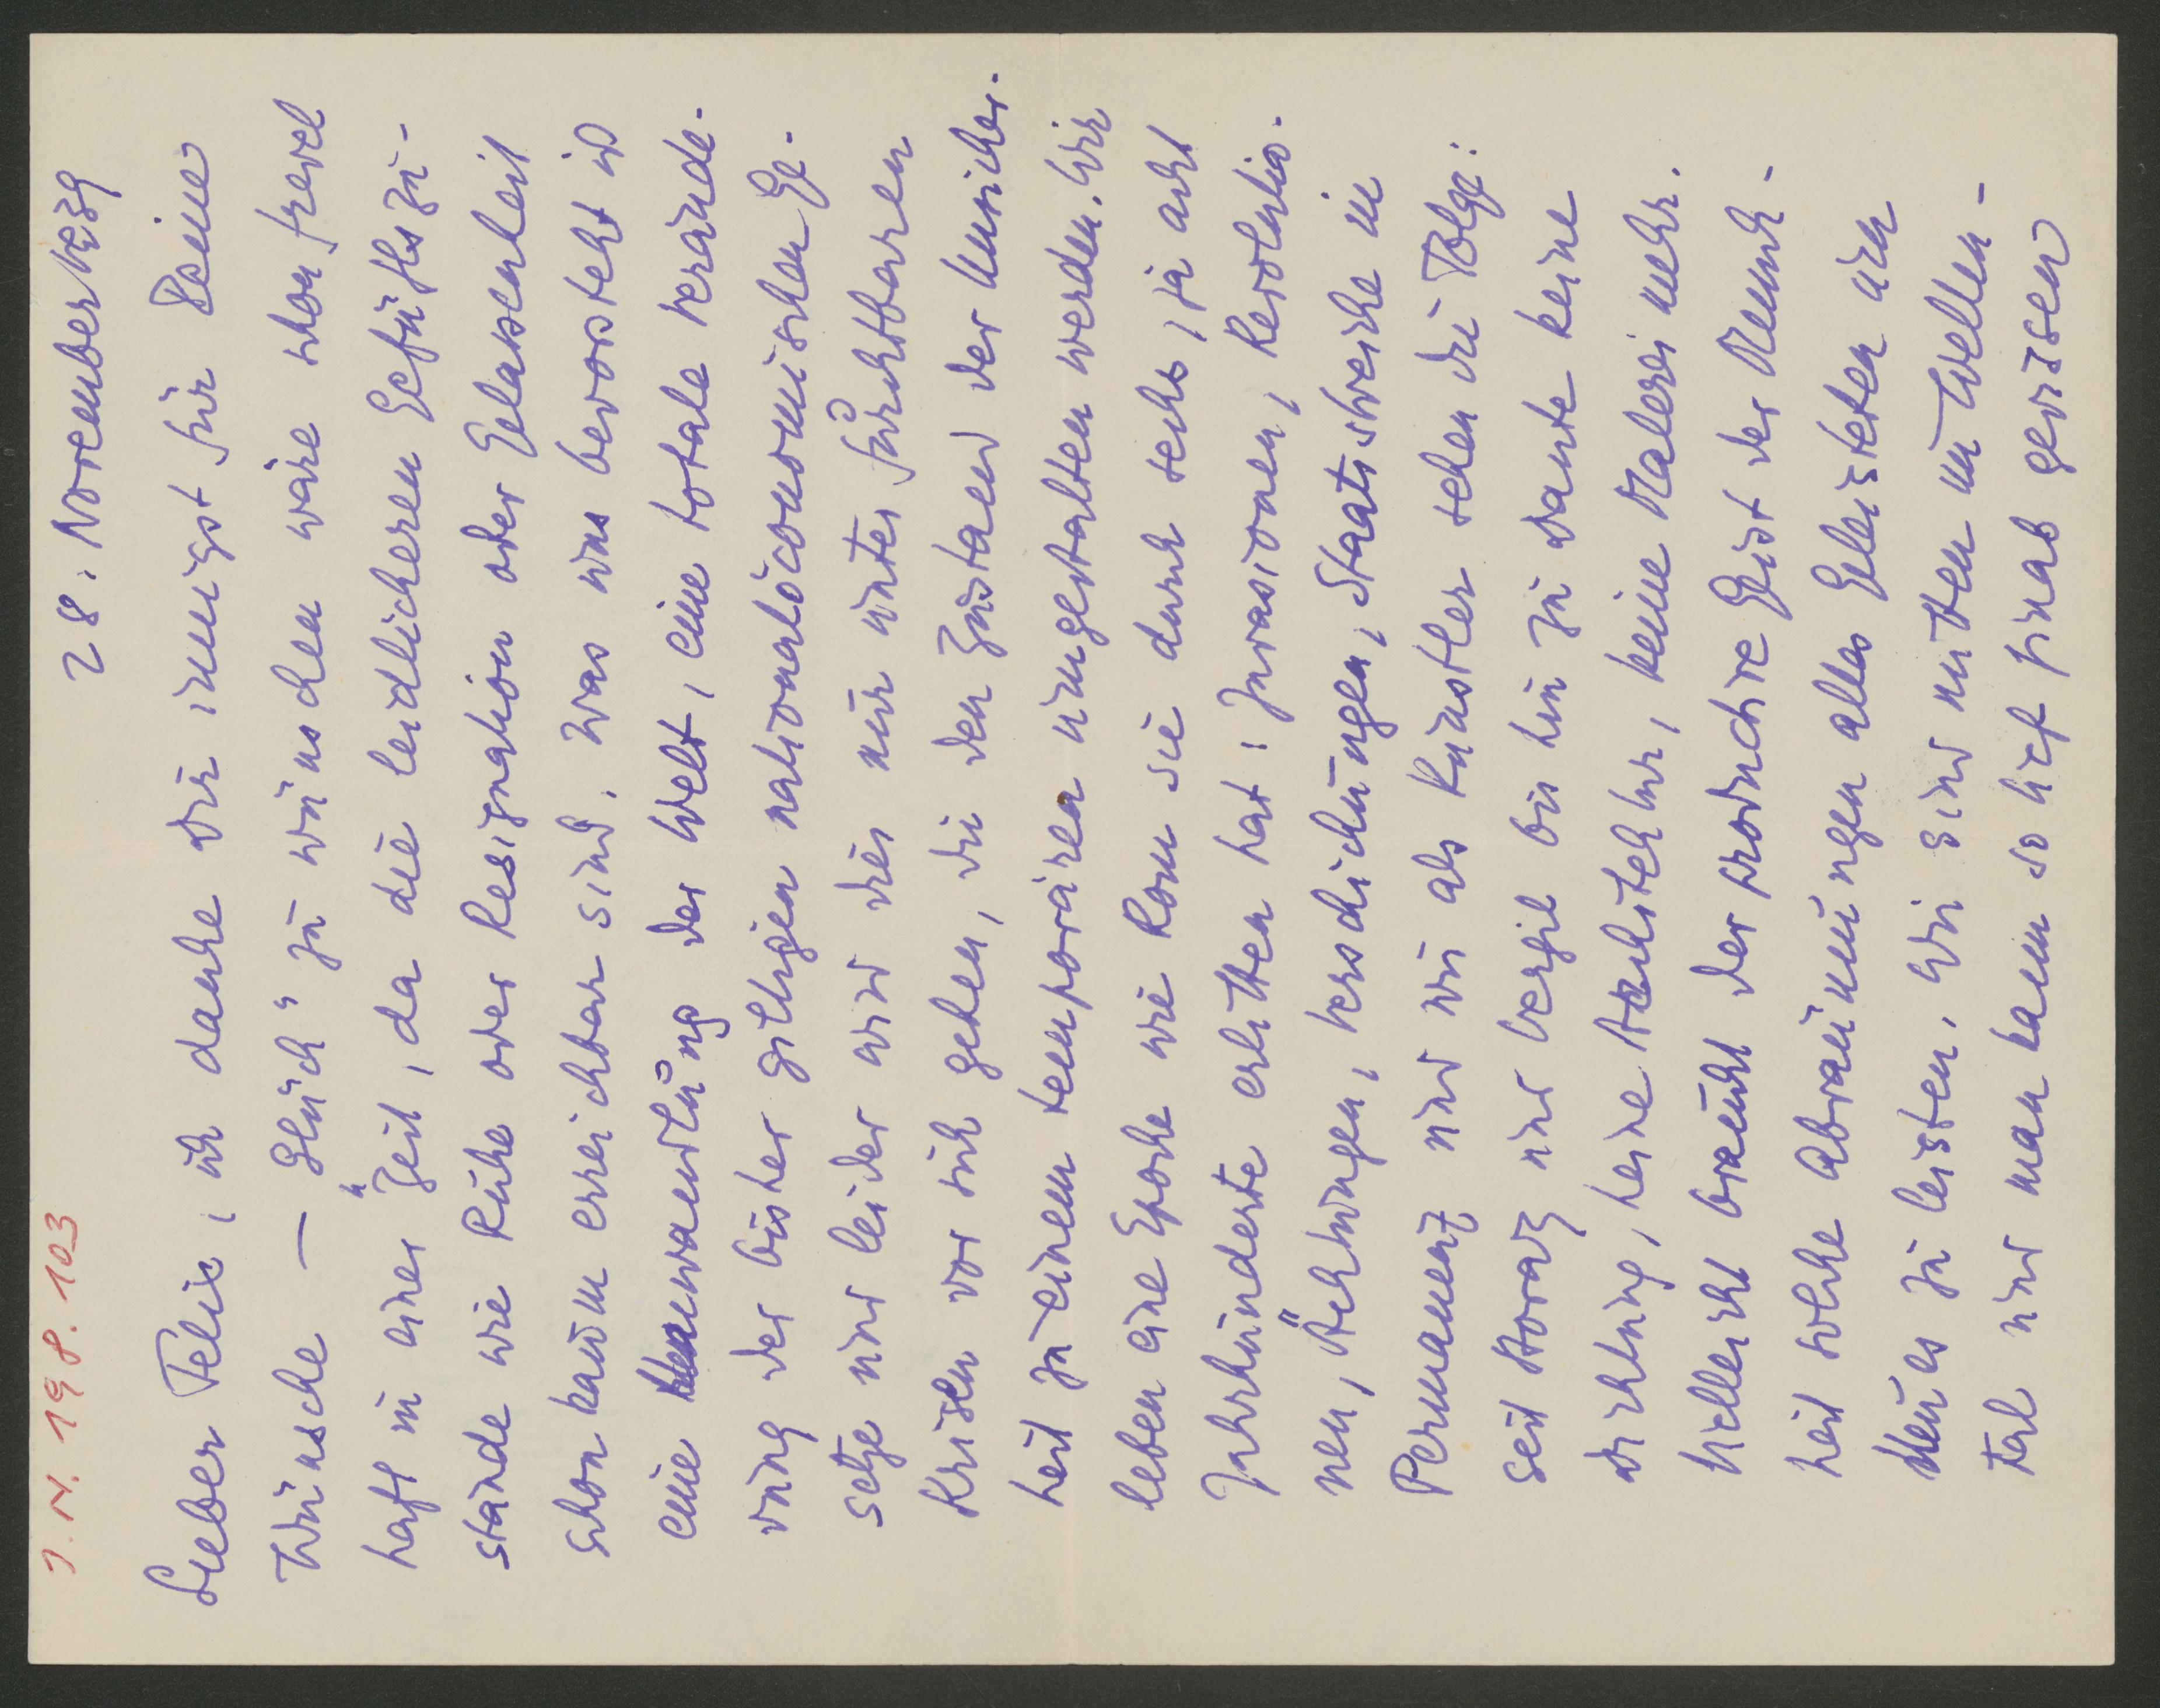 J. N. 198.103
28. November 1939
Lieber Felix, ich danke Dir innigst für Deine
Wünsche — „Glück“ zu wünschen wäre schon frevel
haft in einer Zeit, da die leidlicheren Gefühlszu-
stände wie Ruhe oder Resignation oder Gelassenheit
schon kaum erreichbar sind. Was uns bevorsteht ist
eine Umwandlung der Welt, eine totale Verände-
rung der bisher giltigen nationalöconomischen Ge-
setze und leider wird dies nur unter furchtbaren
Krisen vor sich gehen, die den Zustand der Unsicher-
heit zu einem temporären umgestalten werden. Wir
leben eine Epoche wie Rom sie durch sechs, ja acht
Jahrhunderte erlitten hat: Invasionen, Revolutio-
nen, Ächtungen, Verschickungen, Staatsstreiche in
Permanenz und wir als Künstler sehen die Folge:
seit Horaz und Vergil bis hin zu Dante keine
Dichtung, keine Architektur, keine Malerei mehr.
Vielleicht braucht der productive Geist der Mensch-
heit solche Abräumungen alles Geleisteten um
Neues zu leisten. Wir sind mitten im Wellen-
tal und man kann so tief hinab gerissen